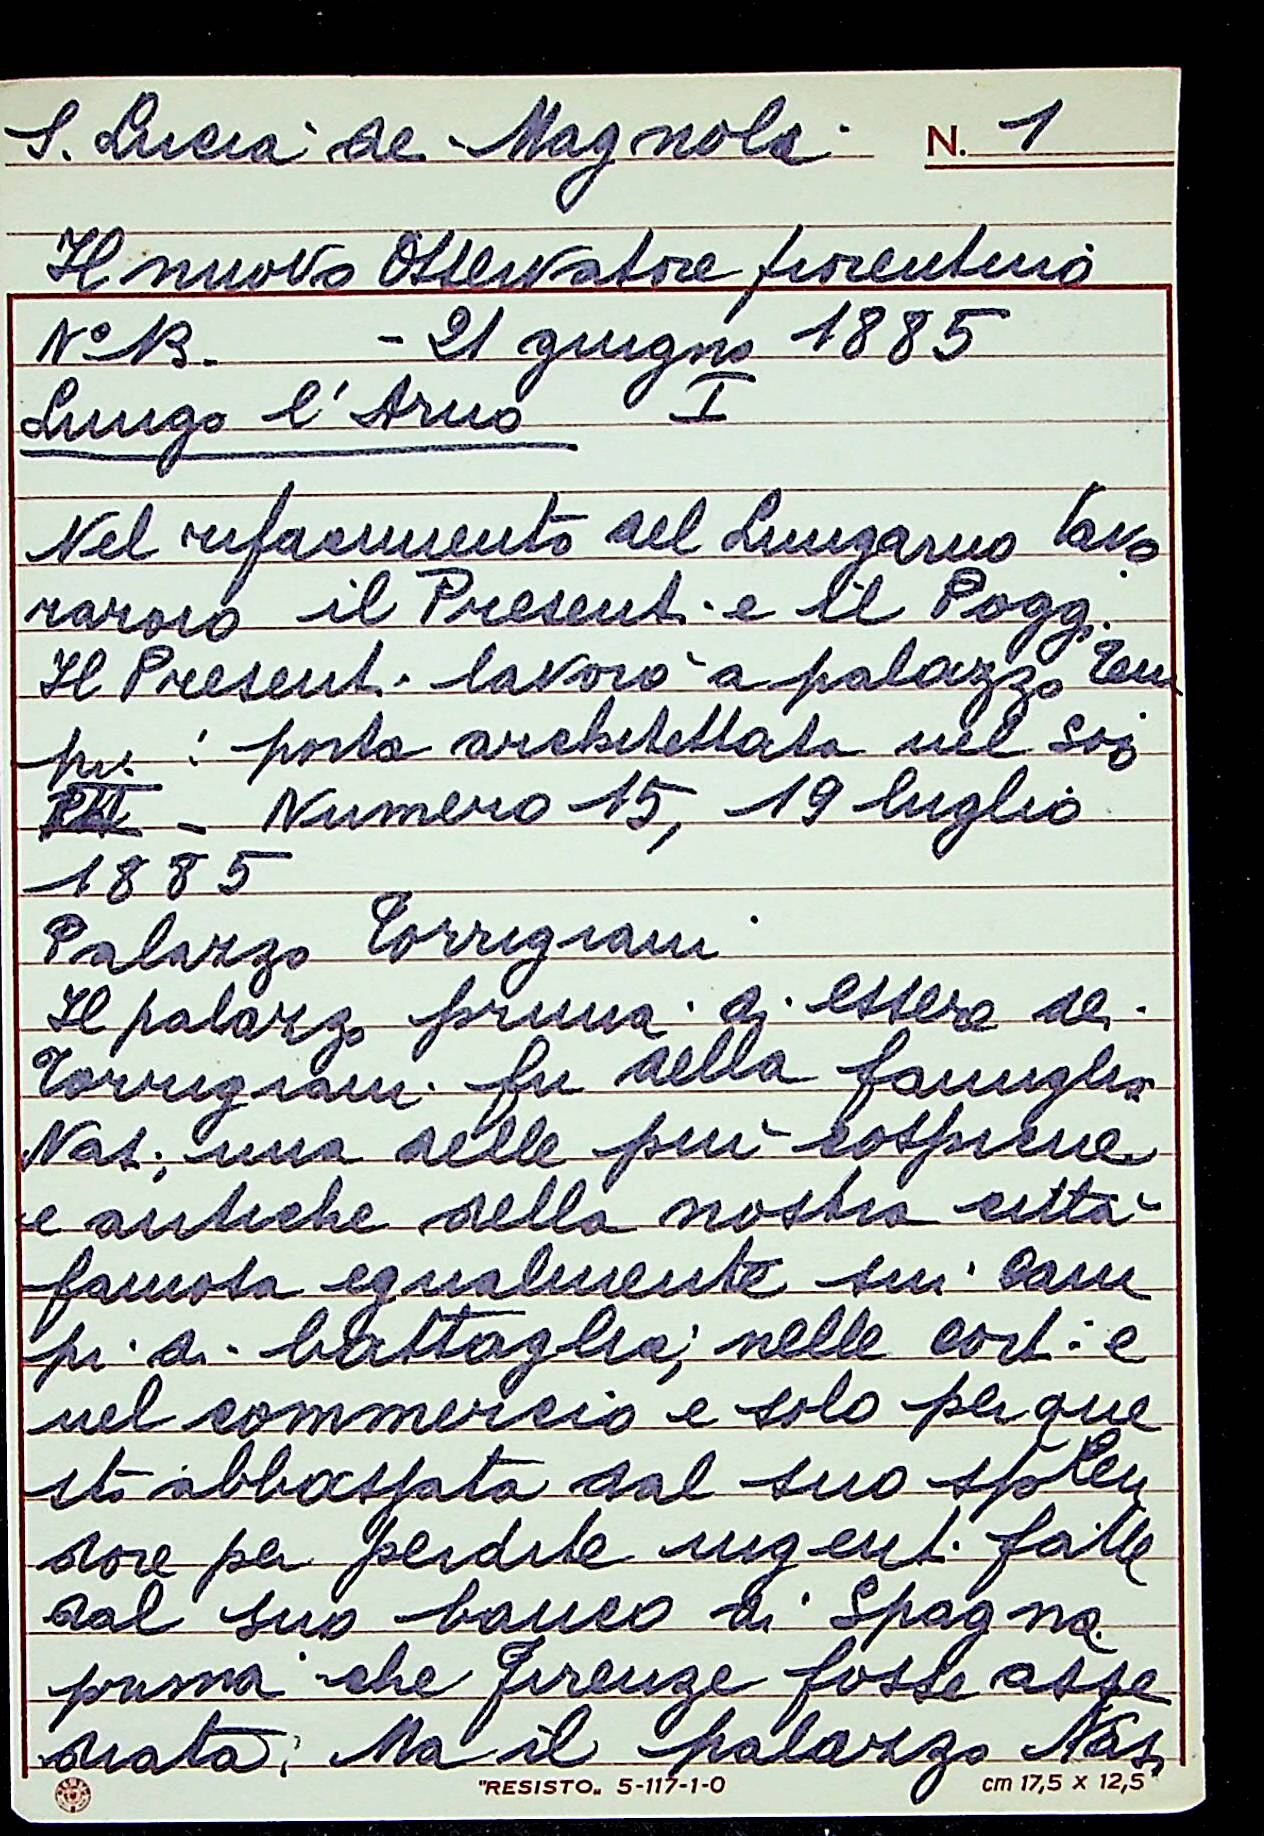 S. Lucia de Magnoli N. 1
Il nuovo Osservatore fiorentino
N° 13. - 21 giugno 1885
Lungo l'Arno I
Nel rifacimento del Lungarno lavo
rarono il Presenti e il Poggi.
Il Presenti lavorò a palazzo Tem
pi: porta architettata nel
- Numero 15, 19 luglio
1885
Palazzo Torrigiani
Il palazzo prima di essere dei
Torrigiani fu della famiglia
Nasi, una delle più cospicue
e antiche della nostra città
famosa egualmente sui cam
pi di battaglia, nelle corti e
nel commercio e solo per que
sto abbassata dal suo splen
dore per perdite ingenti fatte
dal suo banco di Spagna
prima che Firenze fosse asse
diata. Ma il palazzo Nasi
"RESISTO„ 5-117-1-0 cm 17,5 x 12,5